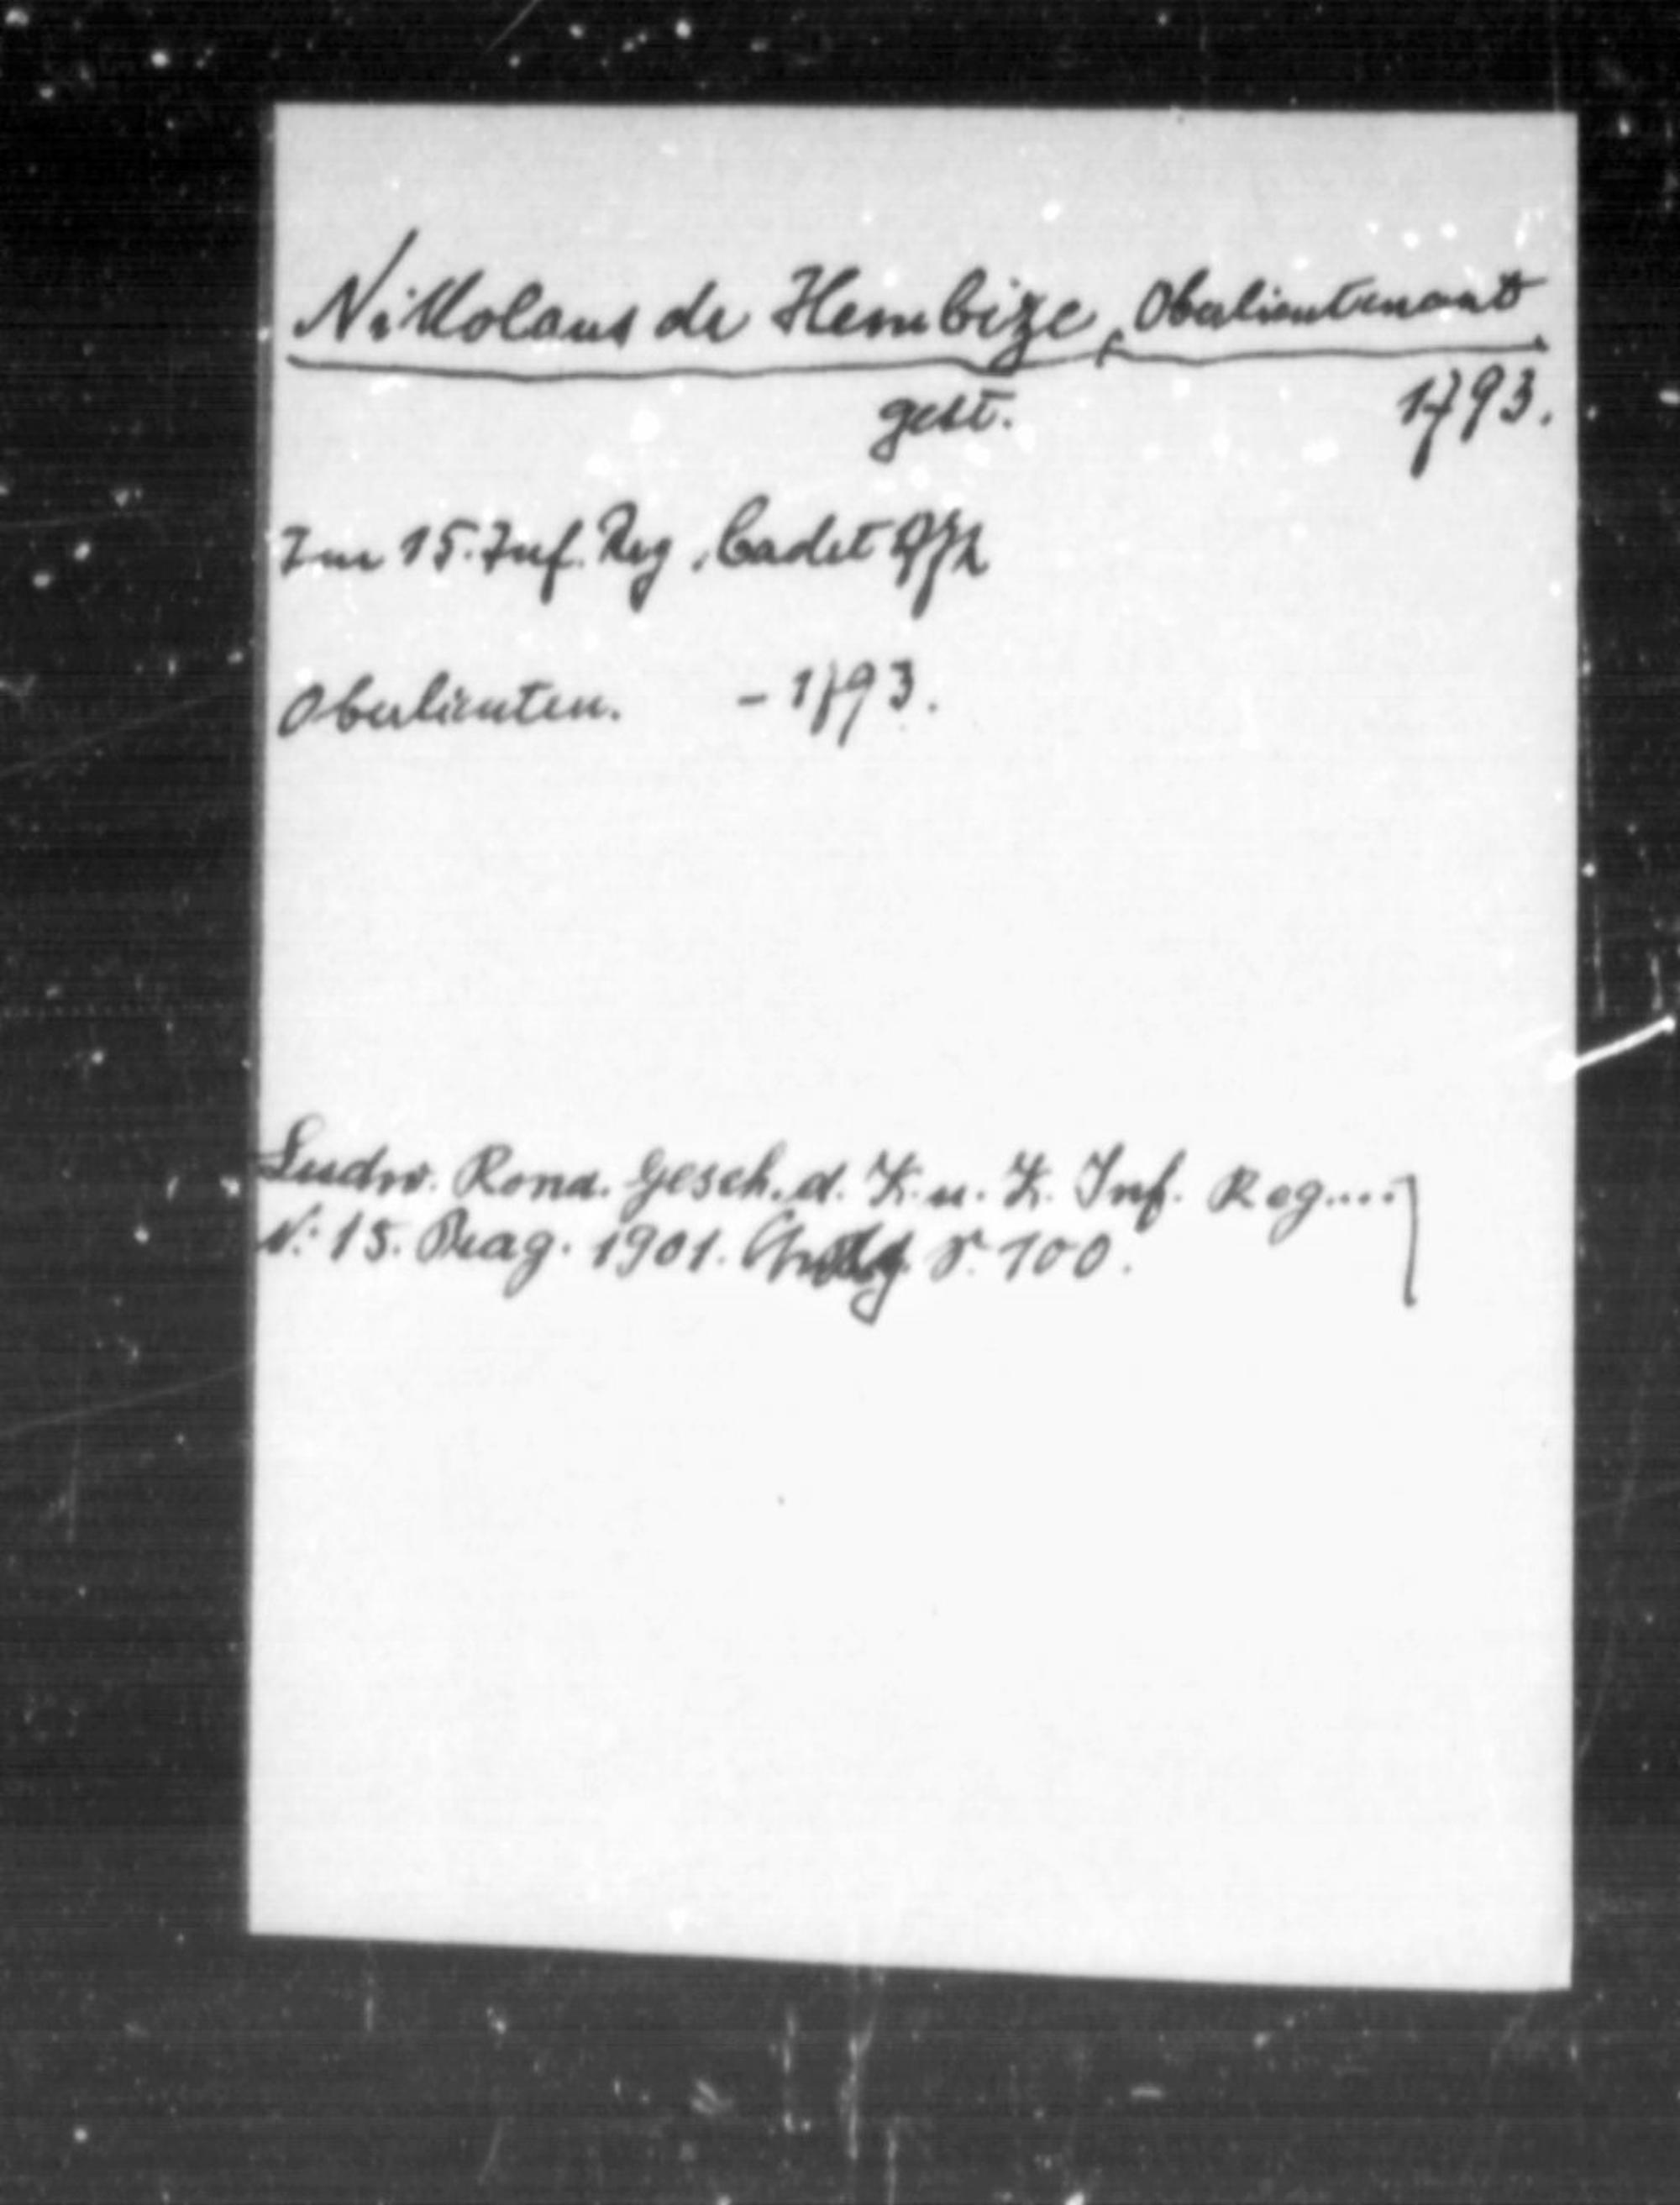 Nikolaus de Hembize, Oberlieutenant
gest. 1793.
Im 15. Inf. Reg, Cadet
Oberlieuten. - 1793.
Ludw. Rona. Gesch. d. K. u. K. Inf. Reg....
N: 15. Prag. 1901. S. 100.